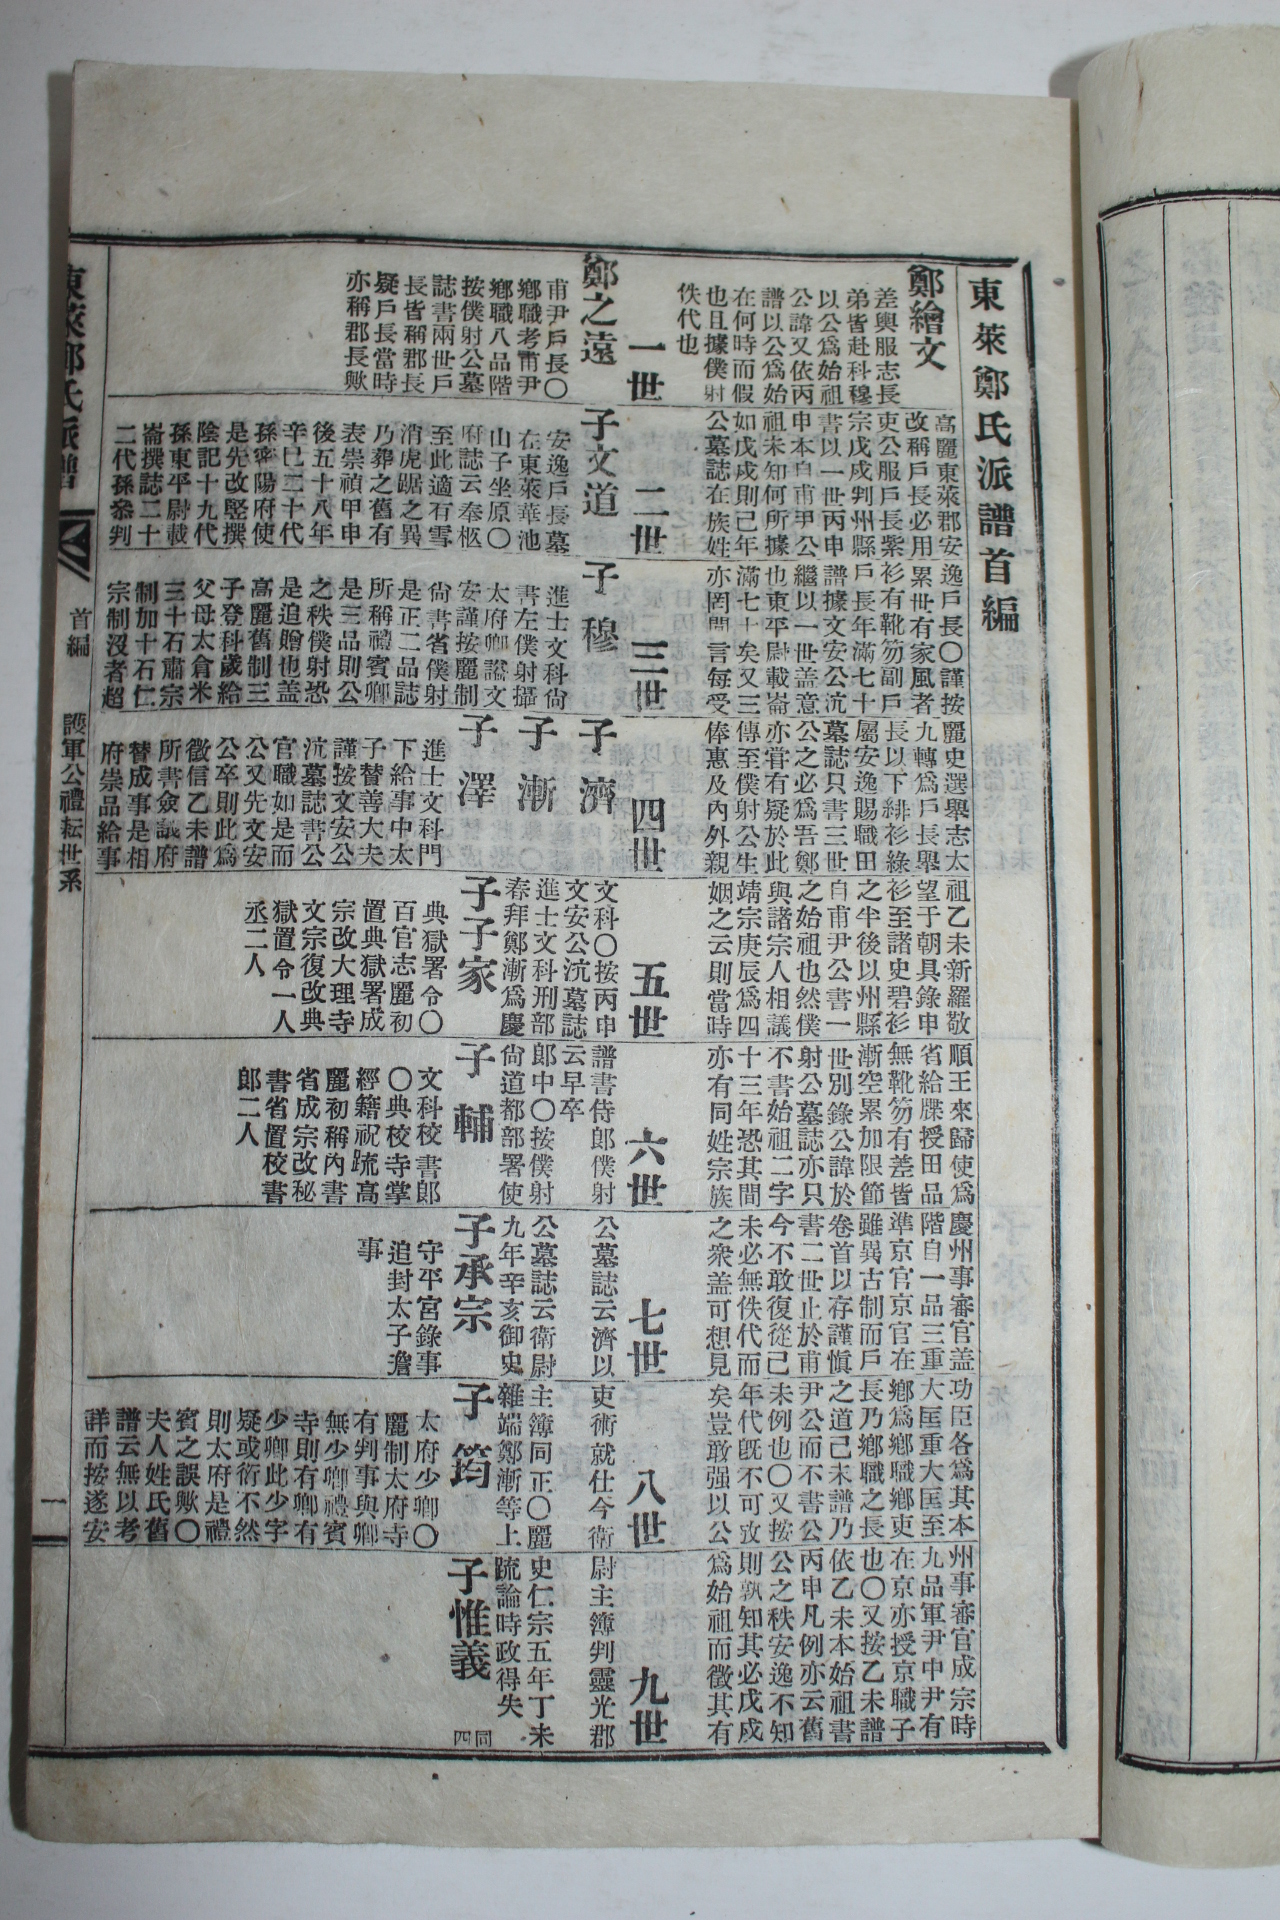 東萊鄭氏派譜首編
鄭繪文
高麗東萊郡安逸戶長○謹按麗史選擧志太祖乙未新羅敬順王來歸使爲慶州事審官盖功臣各爲其本州事審官成宗時
改稱戶長必用累世有家風者九轉爲戶長擧望于朝具錄申省給牒授田品階自一品三重大匡重大匡至九品軍尹中尹有
差輿服志長吏公服戶長紫衫有靴笏副戶長以下緋衫綠衫至諸史碧衫無靴笏有差皆準京官京官在鄕爲鄕職鄕吏在京亦授京職子
弟皆赴科穆宗戊戌判州縣戶長年滿七十屬安逸賜職田之半後以州縣漸空累加限節雖異古制而戶長乃鄕職之長也○又按乙未譜
以公爲始祖書以一世丙申譜據文安公沆墓誌只書三世自甫尹公書一世別錄公諱於卷首以存謹愼之道己未譜乃依乙未本始祖書
公諱又依丙申本自甫甲公繼以一世盖意公之必爲吾鄭之始祖也然僕射公墓誌亦只書二世止於甫尹公而不書公丙申凡例亦云舊
譜以公爲始祖未知何所據也東平尉載崙亦甞有疑於此與諸宗人相議不書始祖二字今不敢復從己未例也○又按公之秩安逸不知
在何時而假如戊戌則己年滿七十矣又三傳至僕射公生靖宗庚辰爲四十三年恐其間未必無佚代而年代旣不可攷則孰知其必戊戌
也且據僕射公墓誌在族姓亦罔間言每受俸惠及內外親姻之云則當時亦有同姓宗族之衆盖可想見矣豈敢强以公爲始祖而徵其有
佚代也
一世 二世 三世 四世 五世 六世 七世 八世 九世
鄭之遠
甫尹戶長○
鄕職考甫尹
鄕職八品階
按僕射公墓
誌書兩世戶
長皆稱郡長
疑戶長當時
亦稱郡長歟
子文道
安逸戶長墓
在東萊華池
山子坐原○
府誌云奉柩
至此適有雪
消虎踞之異
乃葬之舊有
表崇禎甲申
後五十八年
辛巳二十代
孫寧陽府使
是先改竪撰
陰記十九代
孫東平尉載
崙撰誌二十
二代孫泰判
子穆
進士文科尙
書左僕射攝
太府卿諡文
安謹按麗制
尙書省僕射
是正二品誌
所稱禮賓卿
是三品則公
之秩僕射恐
是追贈也盖
高麗舊制三
子登科歲給
父母太倉米
三十石肅宗
制加十石仁
宗制沒者超
子濟
文科○按丙申譜書侍郞僕射公墓誌云濟以吏術就仕今衛尉主簿判靈光郡
文安公沆墓誌云早卒
子漸
進士文科刑部郞中○按僕射公墓誌云衛尉主簿同正○麗史仁宗五年丁未
春拜鄭漸爲慶尙道都部署使九年辛亥御史雜端鄭漸等上疏論時政得失
子澤
進士文科門
下給事中太
子替善大夫
謹按文安公
沆墓誌書公
官職如是而
公又先文安
公卒則此爲
徵信乙未譜
所書僉議府
替成事是相
府崇品給事
子子家
典獄署令○
百官志麗初
置典獄署成
宗改大理寺
文宗復改典
獄置令一人
丞二人
子輔
文科校書郞
○典校寺掌
經籍祝疏高
麗初稱內書
省成宗改秘
書省置校書
郞二人
子承宗
守平宮錄事
追封太子詹
事
子筠
太府少卿○
麗制太府寺
有判事與卿
無少卿禮賓
寺則有卿有
少卿此少字
疑或衍不然
則太府是禮
賓之誤歟○
夫人姓氏舊
譜云無以考
詳而按遂安
子惟義
同四
東萊鄭氏派譜
首編
護軍公禮耘世系
一